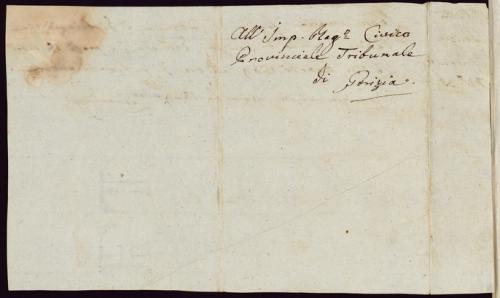 All' Imp. Reg.º Civico
Provinciale Tribunale
di Gorizia.